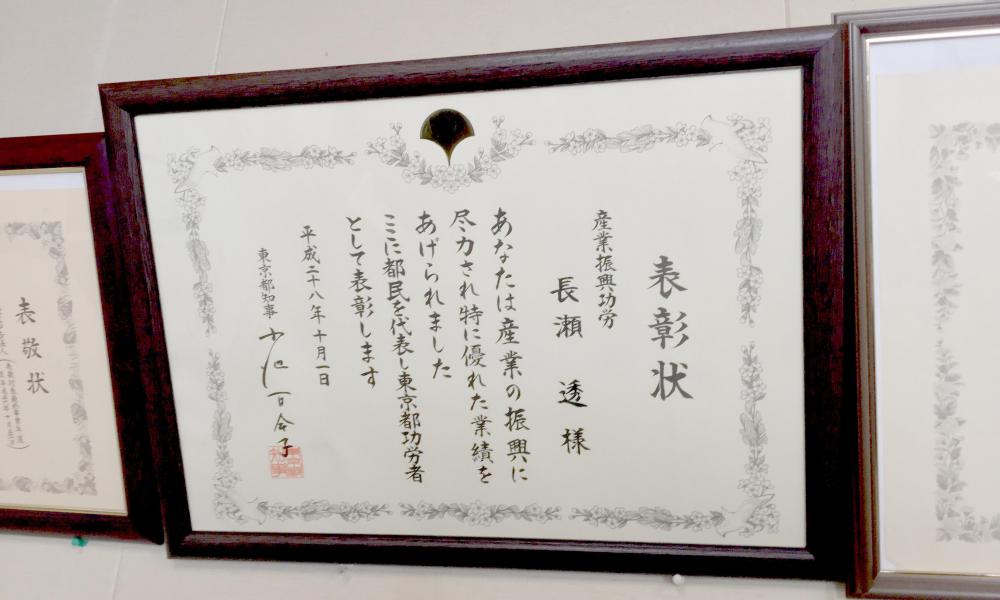 表彰状
産業振興功労
長瀬 透 様
あなたは産業の振興に
尽力され特に優れた業績を
あげられました
ここに都民を代表し東京都功労者
として表彰します
平成二十八年十月一日
東京都知事 小池百合子
表敬状